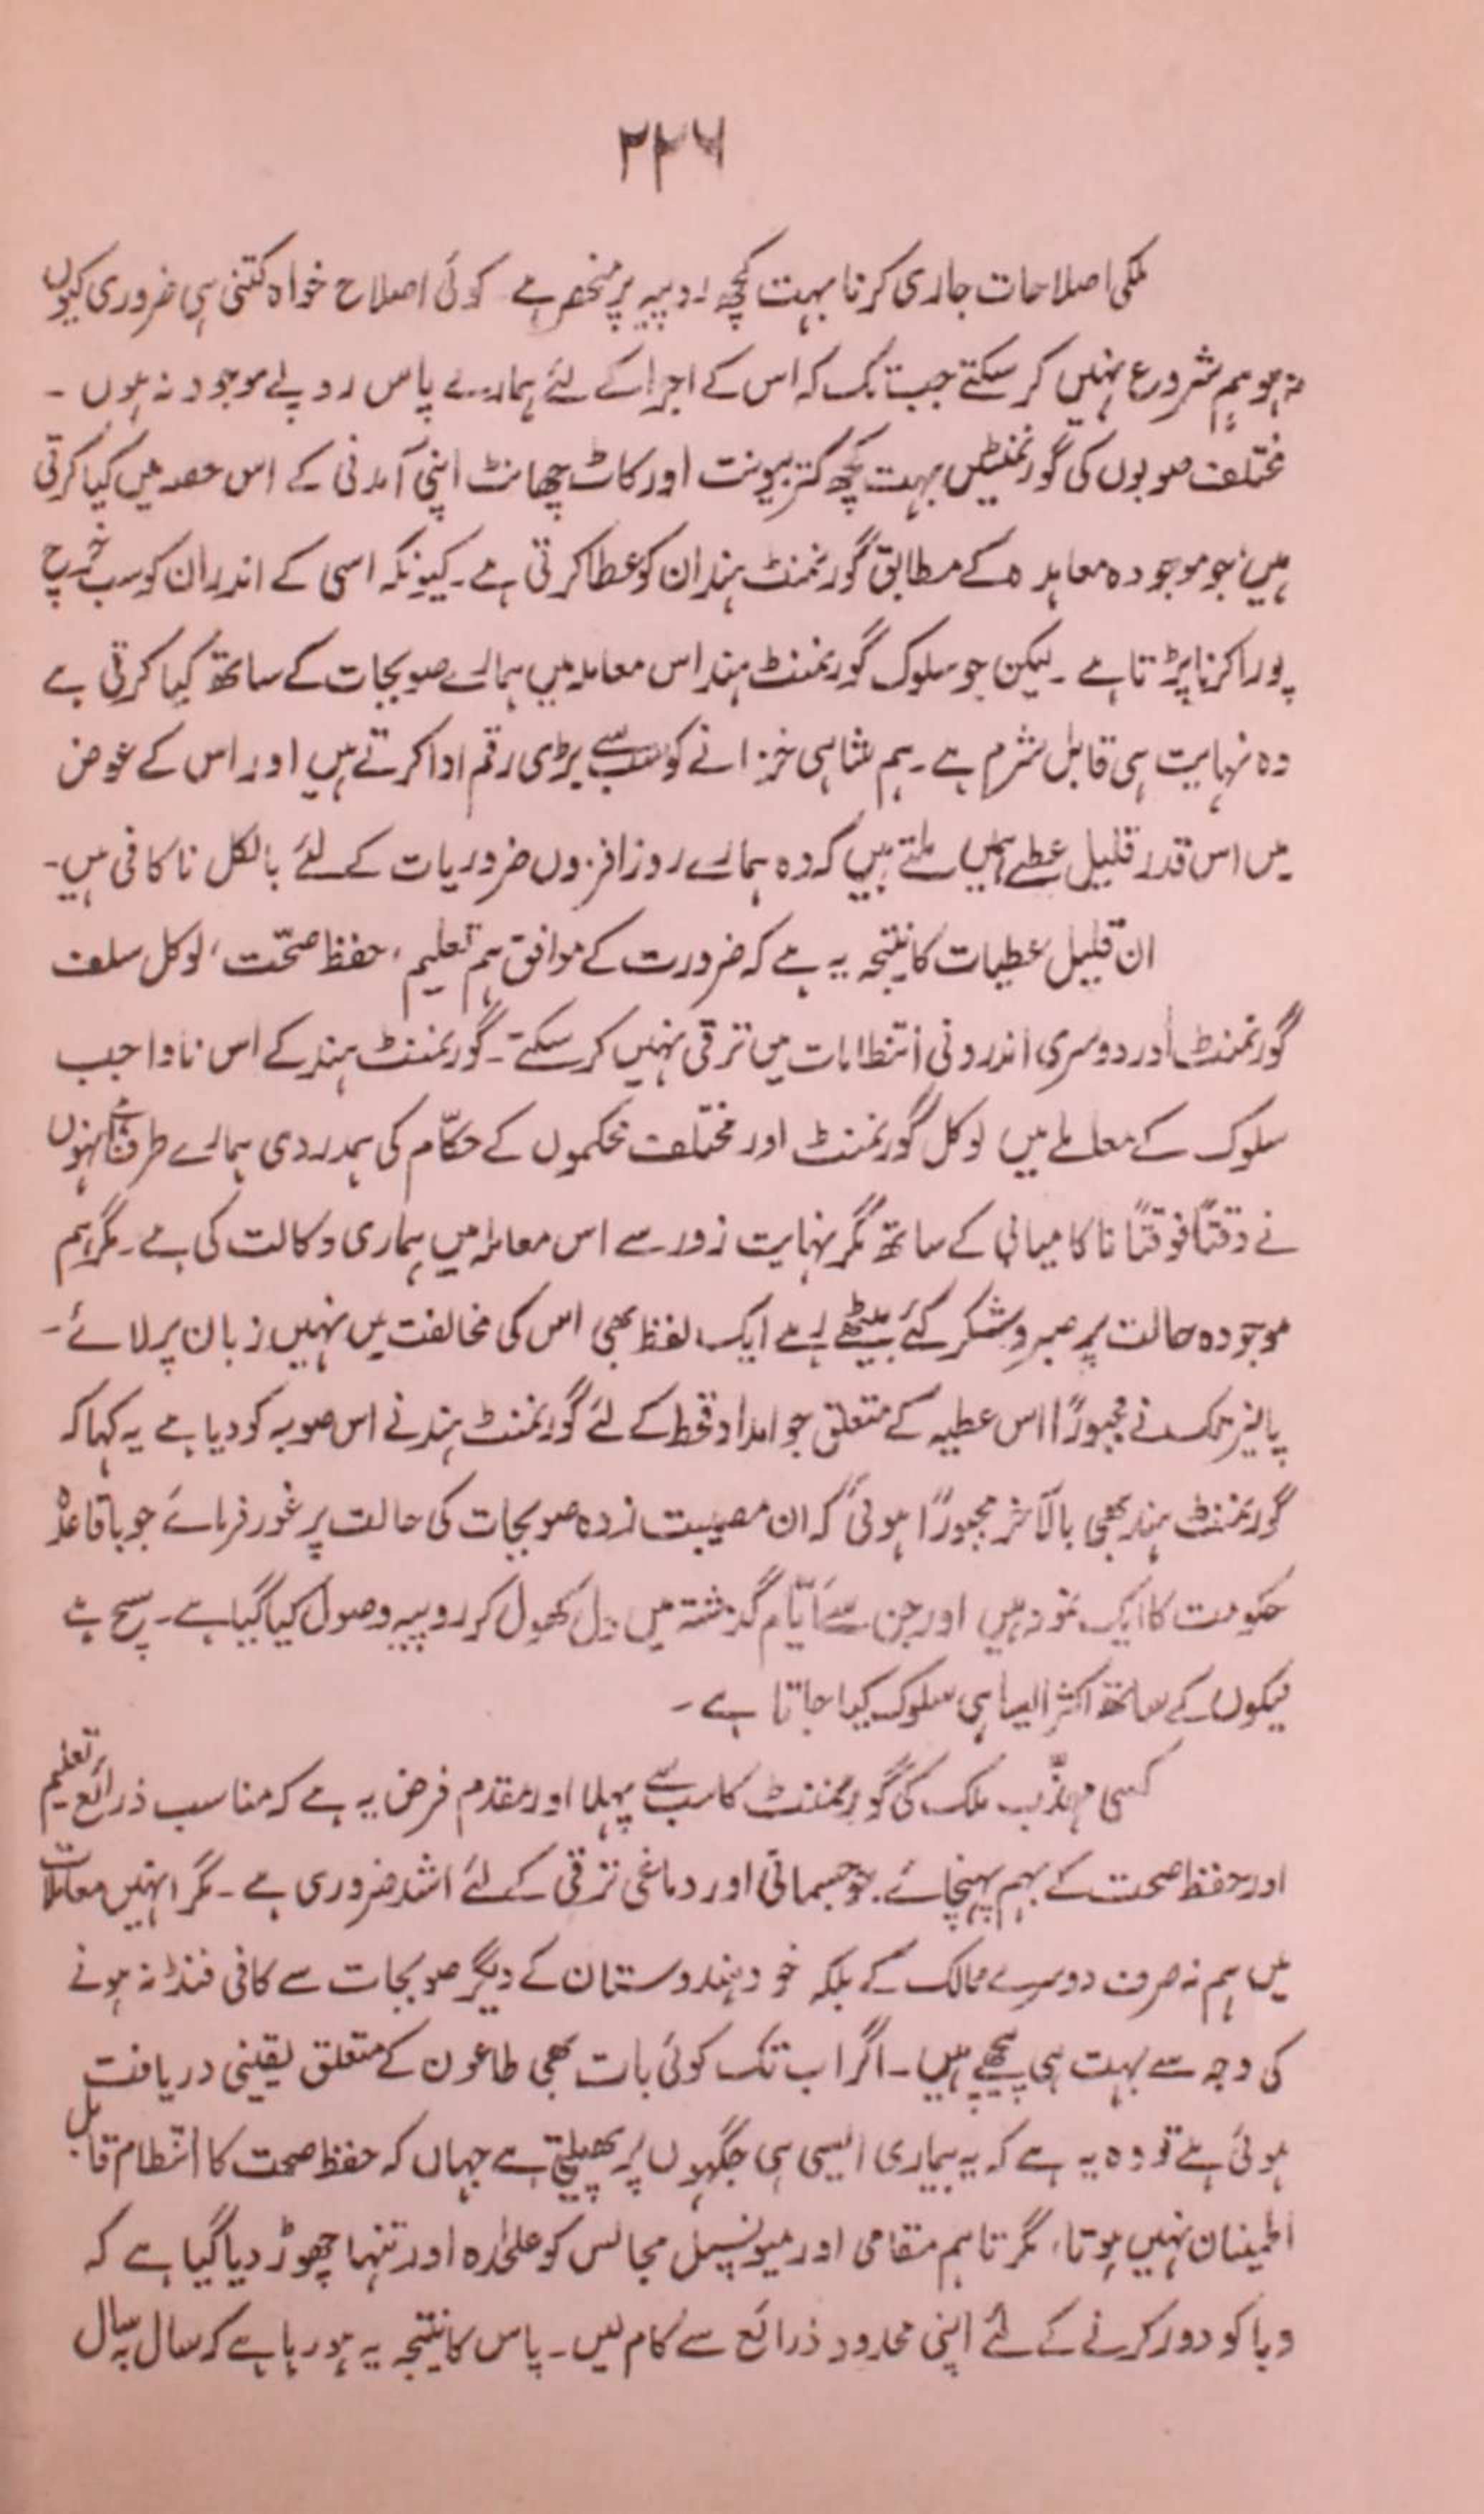 ۲۲۶
ملکی اصلاحات جاری کرنا بہت کچھ روپیہ پر منحصر ہے کوئی اصلاح خواہ کتنی ہی ضروری کیوں
نہ ہو ہم شروع نہیں کر سکتے جب تک کہ اس کے اجرا کے لئے ہمارے پاس روپے موجود نہ ہوں ۔
مختلف صوبوں کی گورنمنٹیں بہت کچھ کتربیونت اور کاٹ چھانٹ اپنی آمدنی کے اس حصہ میں کیا کرتی
ہیں جو موجودہ معاہدہ کے مطابق گورنمنٹ ہند ان کو عطا کرتی ہے۔ کیونکہ اسی کے اندر ان کو سب خرچ
پورا کرنا پڑتا ہے ۔ لیکن جو سلوک گورنمنٹ ہند اس معاملہ میں ہمارے صوبجات کے ساتھ کیا کرتی ہے
وہ نہایت ہی قابل شرم ہے ۔ ہم شاہی خزانے کو سب سے بڑی رقم ادا کرتے ہیں اور اس کے عوض
میں اس قدر قلیل عطیے ہمیں ملتے ہیں کہ وہ ہمارے روز افزوں ضروریات کے لئے بالکل ناکافی ہیں۔
ان قلیل عطیات کا نتیجہ یہ ہے کہ ضرورت کے موافق ہم تعلیم، حفظ صحّت، لوکل سلف
گورنمنٹ اور دوسری اندرونی انتظامات میں ترقی نہیں کر سکتے ۔ گورنمنٹ ہند کے اس ناواجب
سلوک کے معاملے میں لوکل گورنمنٹ اور مختلف محکموں کے حکّام کی ہمدردی ہمارے طرف ہے انہوں
نے وقتاً فوقتاً ناکامیابی کے ساتھ مگر نہایت زور سے اس معاملہ میں ہماری وکالت کی ہے ۔ مگر ہم
موجودہ حالت پر صبر و شکر کئے بیٹھے رہے ایک لفظ بھی اس کی مخالفت میں نہیں زبان پر لائے ۔
پانیر تک نے مجبوراً اس عطیہ کے متعلق جو امداد قحط کے لئے گورنمنٹ ہند نے اس صوبہ کو دیا ہے یہ کہا کہ
گورنمنٹ ہند بھی بالآخر مجبوراً ہوئی کہ ان مصیبت زدہ صوبجات کی حالت پر غور فرمائے جو باقاعدہ
حکومت کا ایک نمونہ ہیں اور جن سے ایّام گذشتہ میں دل کھول کر روپیہ وصول کیا گیا ہے ۔ سچ ہے
نیکوں کے ساتھ اکثر ایسا ہی سلوک کیا جاتا ہے ۔
کسی مہذّب ملک کی گورنمنٹ کا سب سے پہلا اور مقدم فرض یہ ہے کہ مناسب ذرائع تعلیم
اور حفظ صحت کے بہم پہنچائے. جو جسمانی اور دماغی ترقی کے لئے اشد ضروری ہے ۔ مگر انہیں معاملات
میں ہم نہ صرف دوسرے ممالک کے بلکہ خود ہندوستان کے دیگر صوبجات سے کافی فنڈ نہ ہونے
کی وجہ سے بہت ہی پیچھے ہیں ۔ اگر اب تک کوئی بات بھی طاعون کے متعلق یقینی دریافت
ہوئی ہے تو وہ یہ ہے کہ یہ بیماری ایسی ہی جگہوں پر پھیلتی ہے جہاں کہ حفظ صحت کا انتظام قابل
اطمینان نہیں ہوتا، مگر تاہم مقامی اور میونسپل مجالس کو علیٰحدہ اور تنہا چھوڑ دیا گیا ہے کہ
وبا کو دور کرنے کے لئے اپنی محدود ذرائع سے کام لیں ۔ پاس کا نتیجہ یہ ہو رہا ہے کہ سال بہ سال